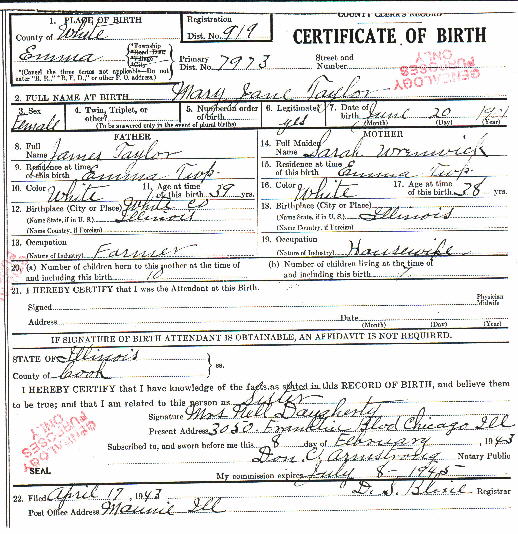 COUNTY CLERK'S RECORD
1. PLACE OF BIRTH
County of White
Emma
*Township
*Road Dist.
*Village
*City
*(Cancel the three terms not applicable—Do not enter "R. R.," "R. F. D.," or other P. O. address)
Registration
Dist. No. 919
Primary
Dist. No. 7973
CERTIFICATE OF BIRTH
Street and
Number
GENEALOGY
PURPOSES
ONLY
2. FULL NAME AT BIRTH Mary Jane Taylor
3. Sex
Female
4. Twin, Triplet, or
other?
5. Number in order
of birth
(To be answered only in the event of plural births)
6. Legitimate?
yes
7. Date of
birth June 20
(Month) (Day) (Year)
FATHER
8. Full
Name James Taylor
9. Residence at time
of this birth Emma Twp
10. Color White
11. Age at time
of this birth 39 yrs.
12. Birthplace (City or Place) White Co
(Name State, if in U. S.) Illinois
(Name Country, if Foreign)
13. Occupation
(Nature of Industry) Farmer
MOTHER
14. Full Maiden
Name Sarah
15. Residence at time
of this birth Emma Twp
16. Color White
17. Age at time
of this birth 38 yrs.
18. Birthplace (City or Place)
(Name State, if in U. S.) Illinois
(Name Country, if Foreign)
19. Occupation
(Nature of Industry) Housewife
20. (a) Number of children born to this mother at the time of
and including this birth 10
(b) Number of children living at the time of
and including this birth
21. I HEREBY CERTIFY that I was the Attendant at this Birth.
Signed
Physician
Midwife
Address
Date
(Month) (Day) (Year)
IF SIGNATURE OF BIRTH ATTENDANT IS OBTAINABLE, AN AFFIDAVIT IS NOT REQUIRED.
STATE OF Illinois
County of Cook
} ss.
I HEREBY CERTIFY that I have knowledge of the facts, as stated in this RECORD OF BIRTH, and believe them
to be true; and that I am related to this person as Sister
Signature Mrs Nell Daugherty
Present Address 3030 Franklin Blvd Chicago Ill
Subscribed to, and sworn before me this 8 day of February, 1943
Don C. Armstrong Notary Public
My commission expires July 8 - 1945
SEAL
GENEALOGY
PURPOSES
ONLY
22. Filed April 17, 1943
Registrar
Post Office Address Maunie Ill